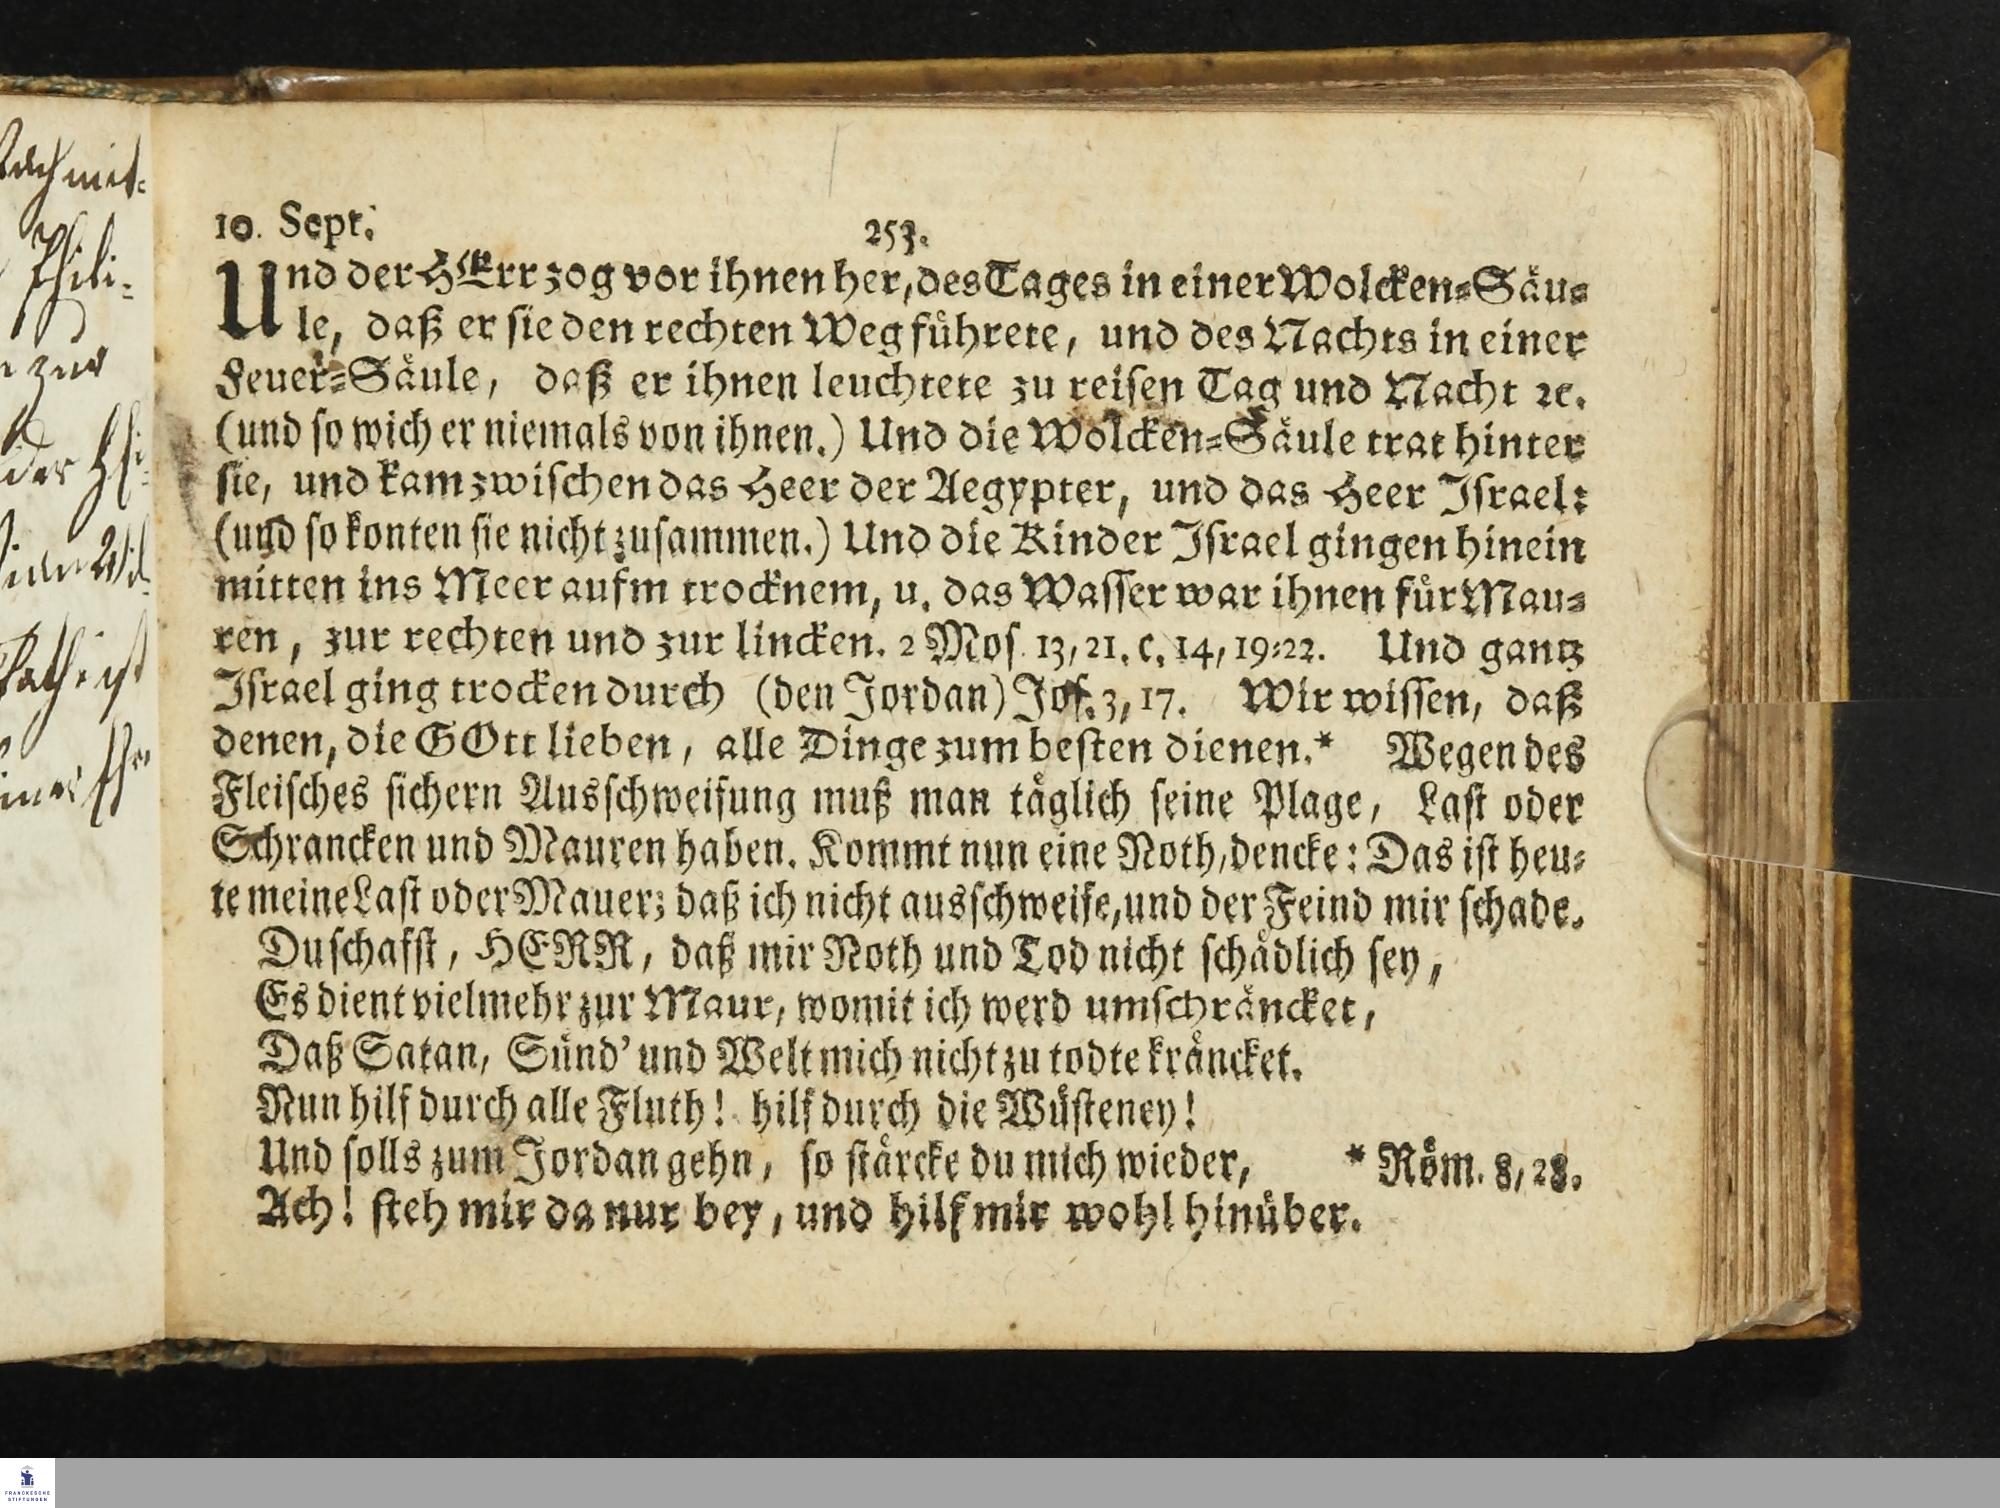 10. Sept. 253.
Und der HErr zog vor ihnen her, des Tages in einer Wolcken-Säu-
le, daß er sie den rechten Weg führete, und des Nachts in einer
Feuer-Säule, daß er ihnen leuchtete zu reisen Tag und Nacht ꝛc.
(und so wich er niemals von ihnen.) Und die Wolcken-Säule trat hinter
sie, und kam zwischen das Heer der Aegypter, und das Heer Israel:
(und so konten sie nicht zusammen.) Und die Kinder Israel gingen hinein
mitten ins Meer aufm trocknem, u. das Wasser war ihnen für Mau-
ren, zur rechten und zur lincken. 2 Mos. 13, 21. c. 14, 19:22. Und gantz
Israel ging trocken durch (den Jordan) Jos. 3, 17. Wir wissen, daß
denen, die GOtt lieben, alle Dinge zum besten dienen.* Wegen des
Fleisches sichern Ausschweifung muß man täglich seine Plage, Last oder
Schrancken und Mauren haben. Kommt nun eine Noth, dencke: Das ist heu-
te meine Last oder Mauer; daß ich nicht ausschweife, und der Feind mir schade.
Du schafst, HERR, daß mir Noth und Tod nicht schädlich sey,
Es dient vielmehr zur Maur, womit ich werd umschräncket,
Daß Satan, Sünd' und Welt mich nicht zu todte kräncket.
Nun hilf durch alle Fluth! hilf durch die Wüsteney!
Und solls zum Jordan gehn, so stärcke du mich wieder, * Röm. 8, 28.
Ach! steh mir da nur bey, und hilf mir wohl hinüber.
FRANCKESCHE
STIFTUNGEN